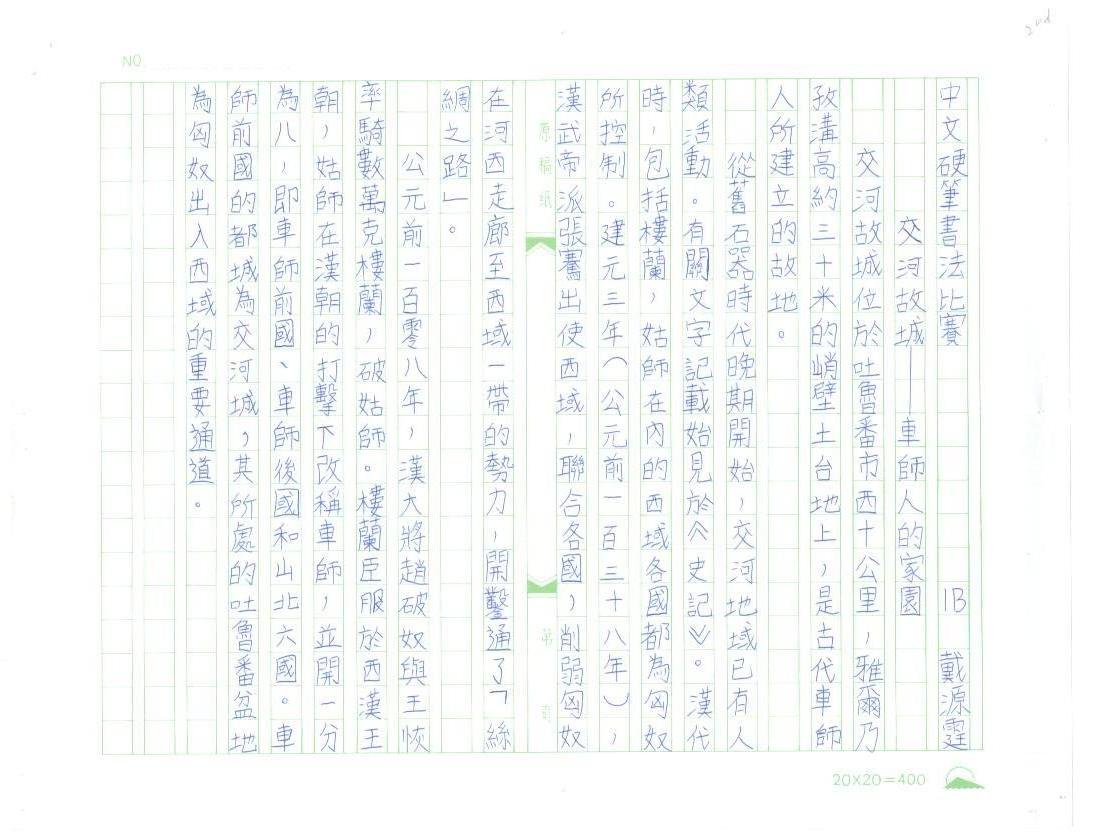 2nd
NO.
中文硬筆書法比賽 1B 戴源霆
交河故城——車師人的家園
交河故城位於吐魯番市西十公里，雅爾乃
孜溝高約三十米的峭壁土台地上，是古代車師
人所建立的故地。
從舊石器時代晚期開始，交河地域已有人
類活動。有關文字記載始見於《史記》。漢代
時，包括樓蘭，姑師在內的西域各國都為匈奴
所控制。建元三年（公元前一百三十八年），
漢武帝派張騫出使西域，聯合各國，削弱匈奴
原稿紙 第 頁
在河西走廊至西域一帶的勢力，開鑿通了「絲
綢之路」。
公元前一百零八年，漢大將趙破奴與王恢
率騎數萬克樓蘭，破姑師。樓蘭臣服於西漢王
朝，姑師在漢朝的打擊下改稱車師，並開一分
為八，即車師前國、車師後國和山北六國。車
師前國的都城為交河城，其所處的吐魯番盆地
為匈奴出入西域的重要通道。
20X20=400